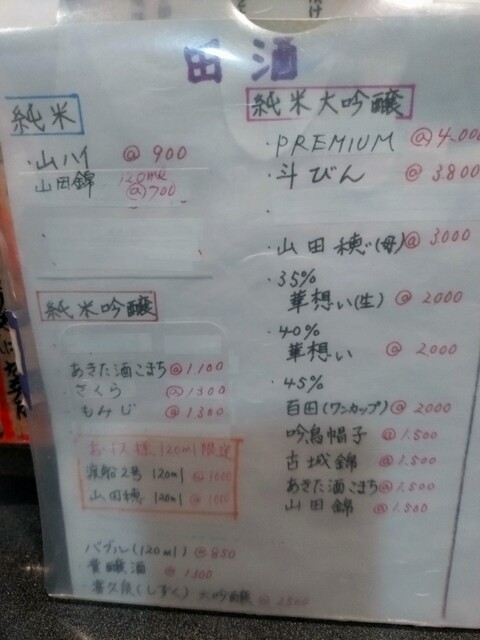 田酒
純米
・山ハイ @900
山田錦 120ml @700
純米吟醸
あきた酒こまち @1,100
さくら @1300
もみじ @1300
お一人様 120ml 限定
渡船2号 120ml @1000
山田穂 120ml
バブル(120ml) @850
貴醸酒 @1300
喜久泉(しずく) 大吟醸 @2500
純米大吟醸
・PREMIUM @4,000
・斗びん @3800
・山田穂(母) @3000
・35%
華想い(生) @2000
・40%
華想い @2000
・45%
百田(ワンカップ) @2000
吟烏帽子 @1,500
古城錦 @1,500
あきた酒こまち @1,500
山田錦 @1,500